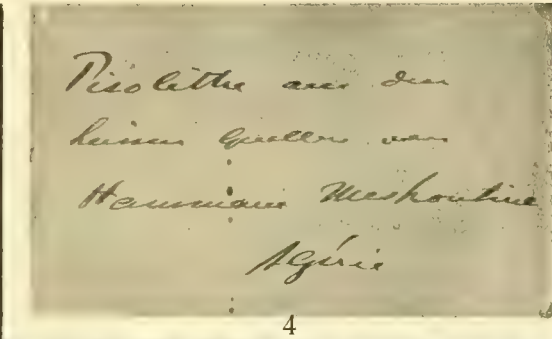 Pisolithe aus den
heissen Quellen von
Hammam Meskoutine
Algérie
4